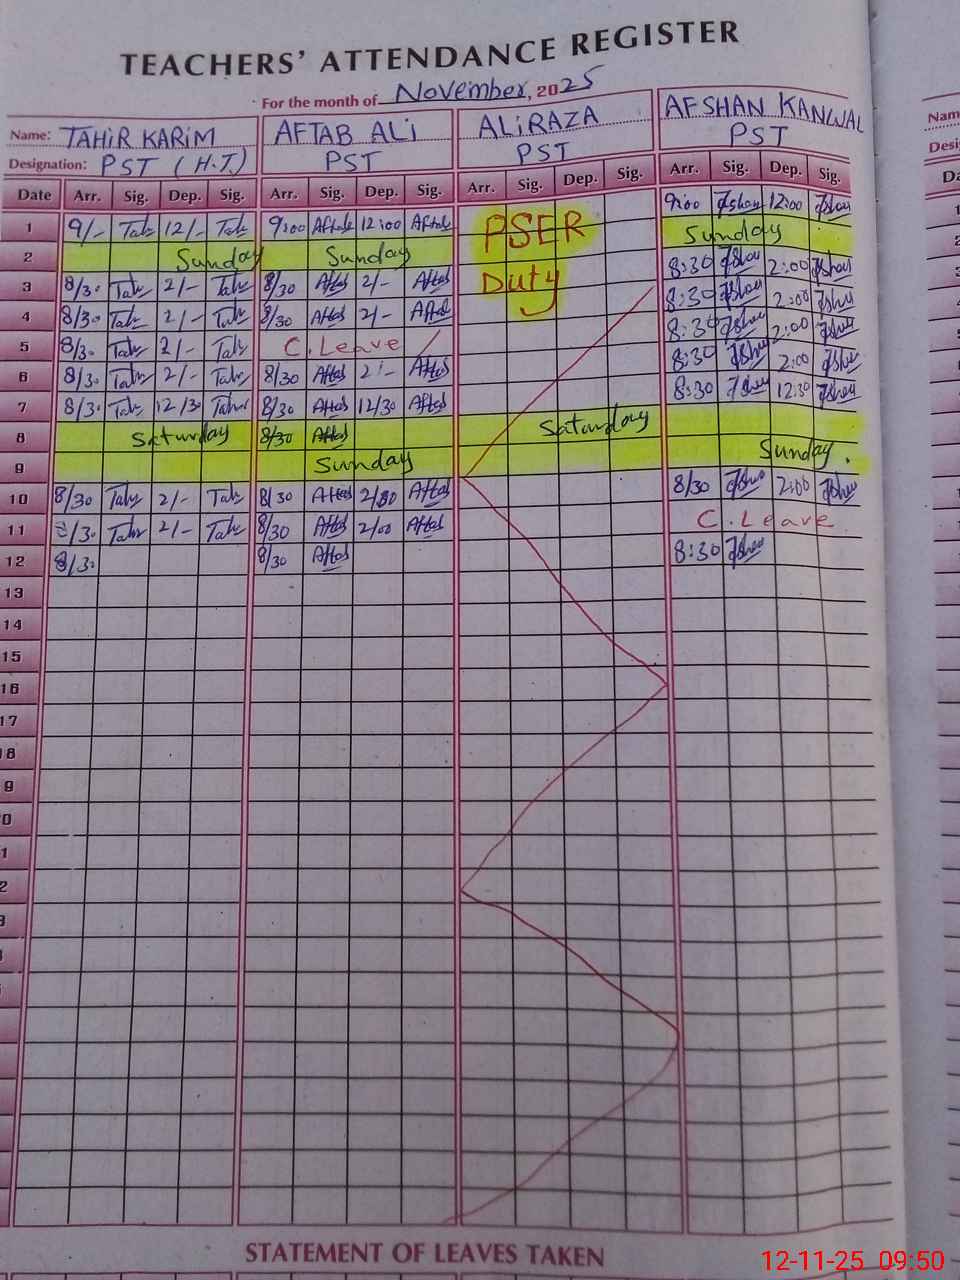 TEACHERS' ATTENDANCE REGISTER
For the month of November, 2025
Name: TAHIR KARIM AFTAB ALI ALI RAZA AFSHAN KANWAL
Designation: PST (H.T) PST PST PST
Date Arr. Sig. Dep. Sig. Arr. Sig. Dep. Sig. Arr. Sig. Dep. Sig. Arr. Sig. Dep. Sig.
1 9/- 12/- 9:00 Aftab 12:00 Aftab PSER 9:00 12:00
2 Sunday Sunday Sunday
3 8/30 2/- 8/30 Aftab 2/- Aftab Duty 8:30 2:00
4 8/30 2/- 8/30 Aftab 2/- Aftab 8:30 2:00
5 8/30 2/- C. Leave 8:30 2:00
6 8/30 2/- 8/30 Aftab 2:- Aftab 8:30 2:00
7 8/30 12/30 8/30 Aftab 12/30 Aftab 8:30 12:30
8 Saturday 8/30 Aftab Saturday
9 Sunday Sunday.
10 8/30 2/- 8/30 Aftab 2/00 Aftab 8/30 2:00
11 8/30 2/- 8/30 Aftab 2/00 Aftab C. Leave
12 8/30 8/30 Aftab 8:30
13
14
15
16
17
18
9
0
1
2
STATEMENT OF LEAVES TAKEN
12-11-25 09:50